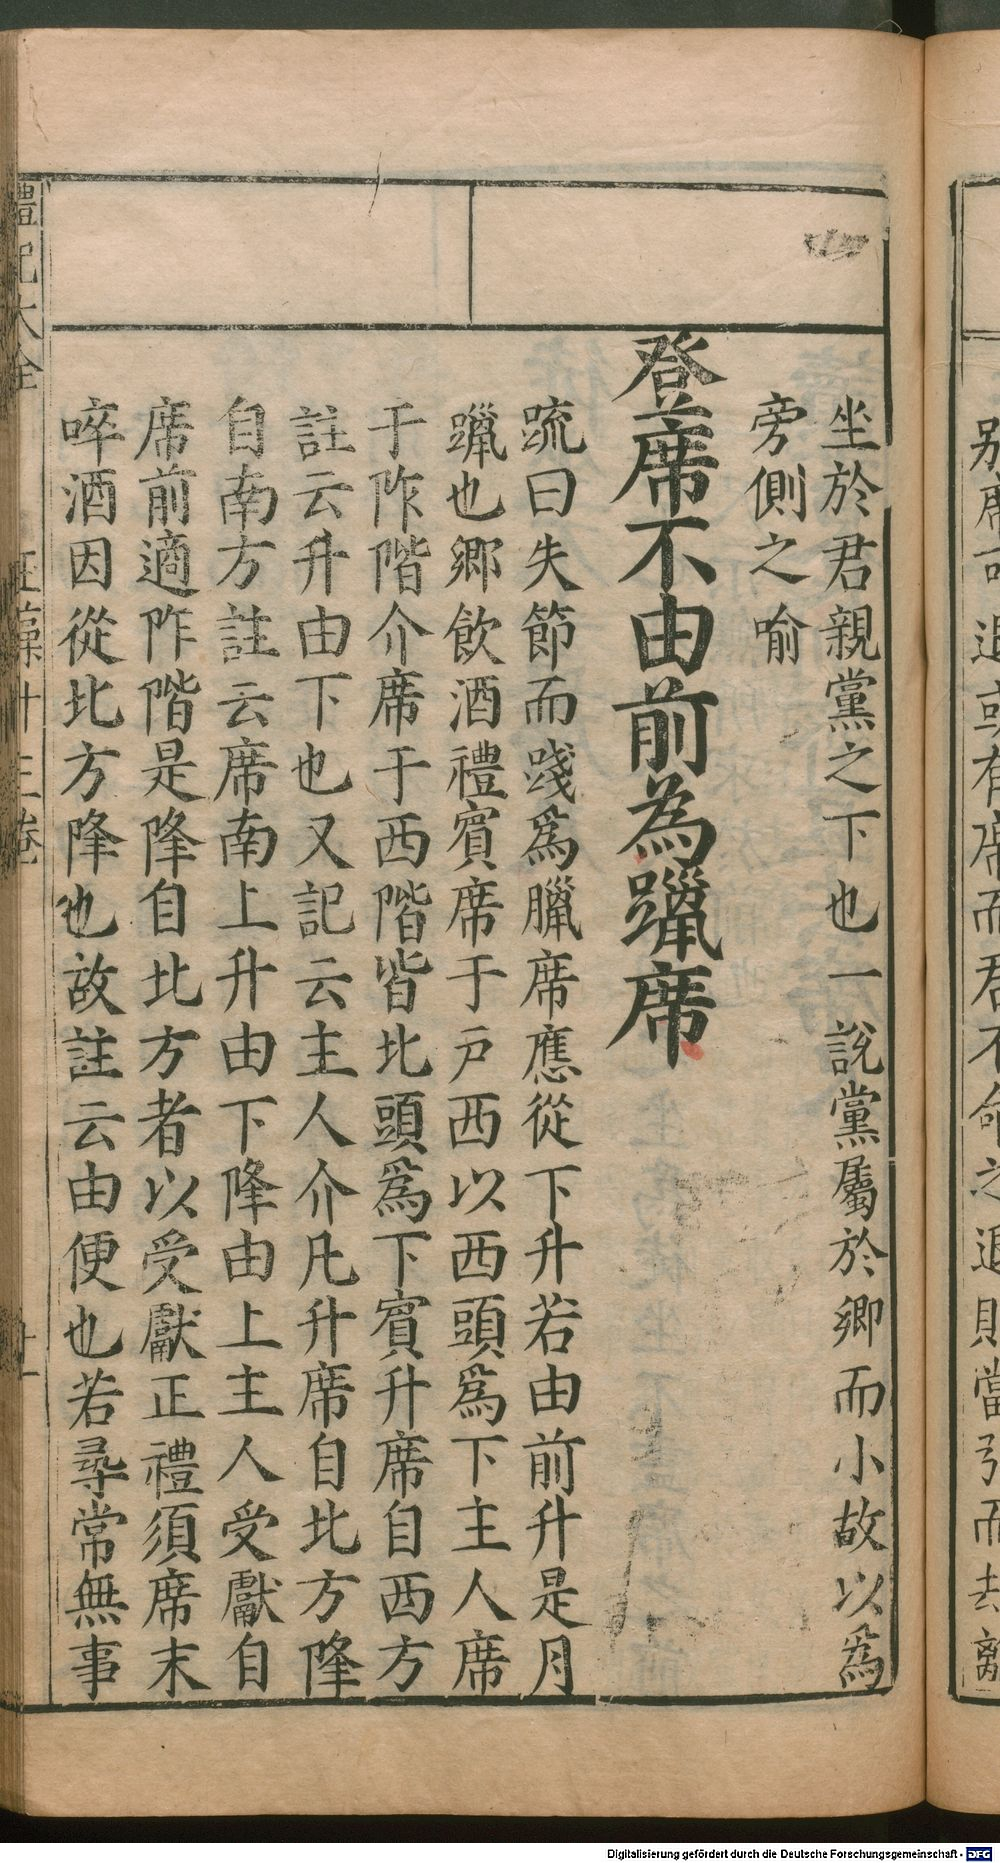 别席可退或有席而君不命之退則當引而去離
坐於君親黨之下也一說黨屬於卿而小故以爲
旁側之喻
登席不由前為躐席
䟽曰失節而踐爲臘席應從下升若由前升是月
躐也鄉飲酒禮賓席于戸西以西頭爲下主人席
于阼階介席于西階皆北頭爲下賓升席自西方
註云升由下也又記云主人介凡升席自北方降
自南方註云席南上升由下降由上主人受獻自
席前適阼階是降自北方者以受獻正禮須席末
啐酒因從北方降也故註云由便也若尋常無事
禮記大全
玉藻十三卷
Digitalisierung gefördert durch die Deutsche Forschungsgemeinschaft - DFG